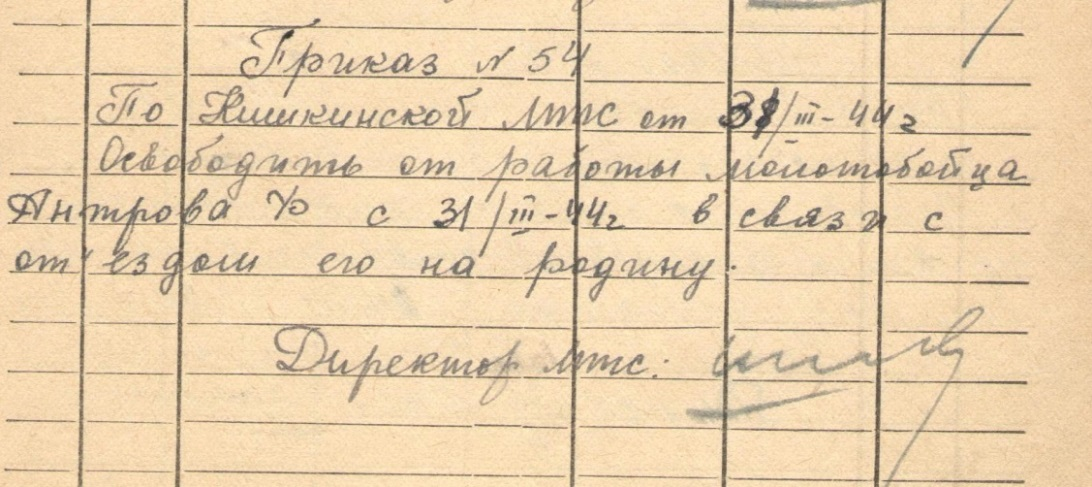 Приказ № 54
По Кишкинской МТС от 31/III-44г
Освободить от работы молотобойца
Антрова с 31/III-44г в связи с
от'ездом его на родину.
Директор МТС: